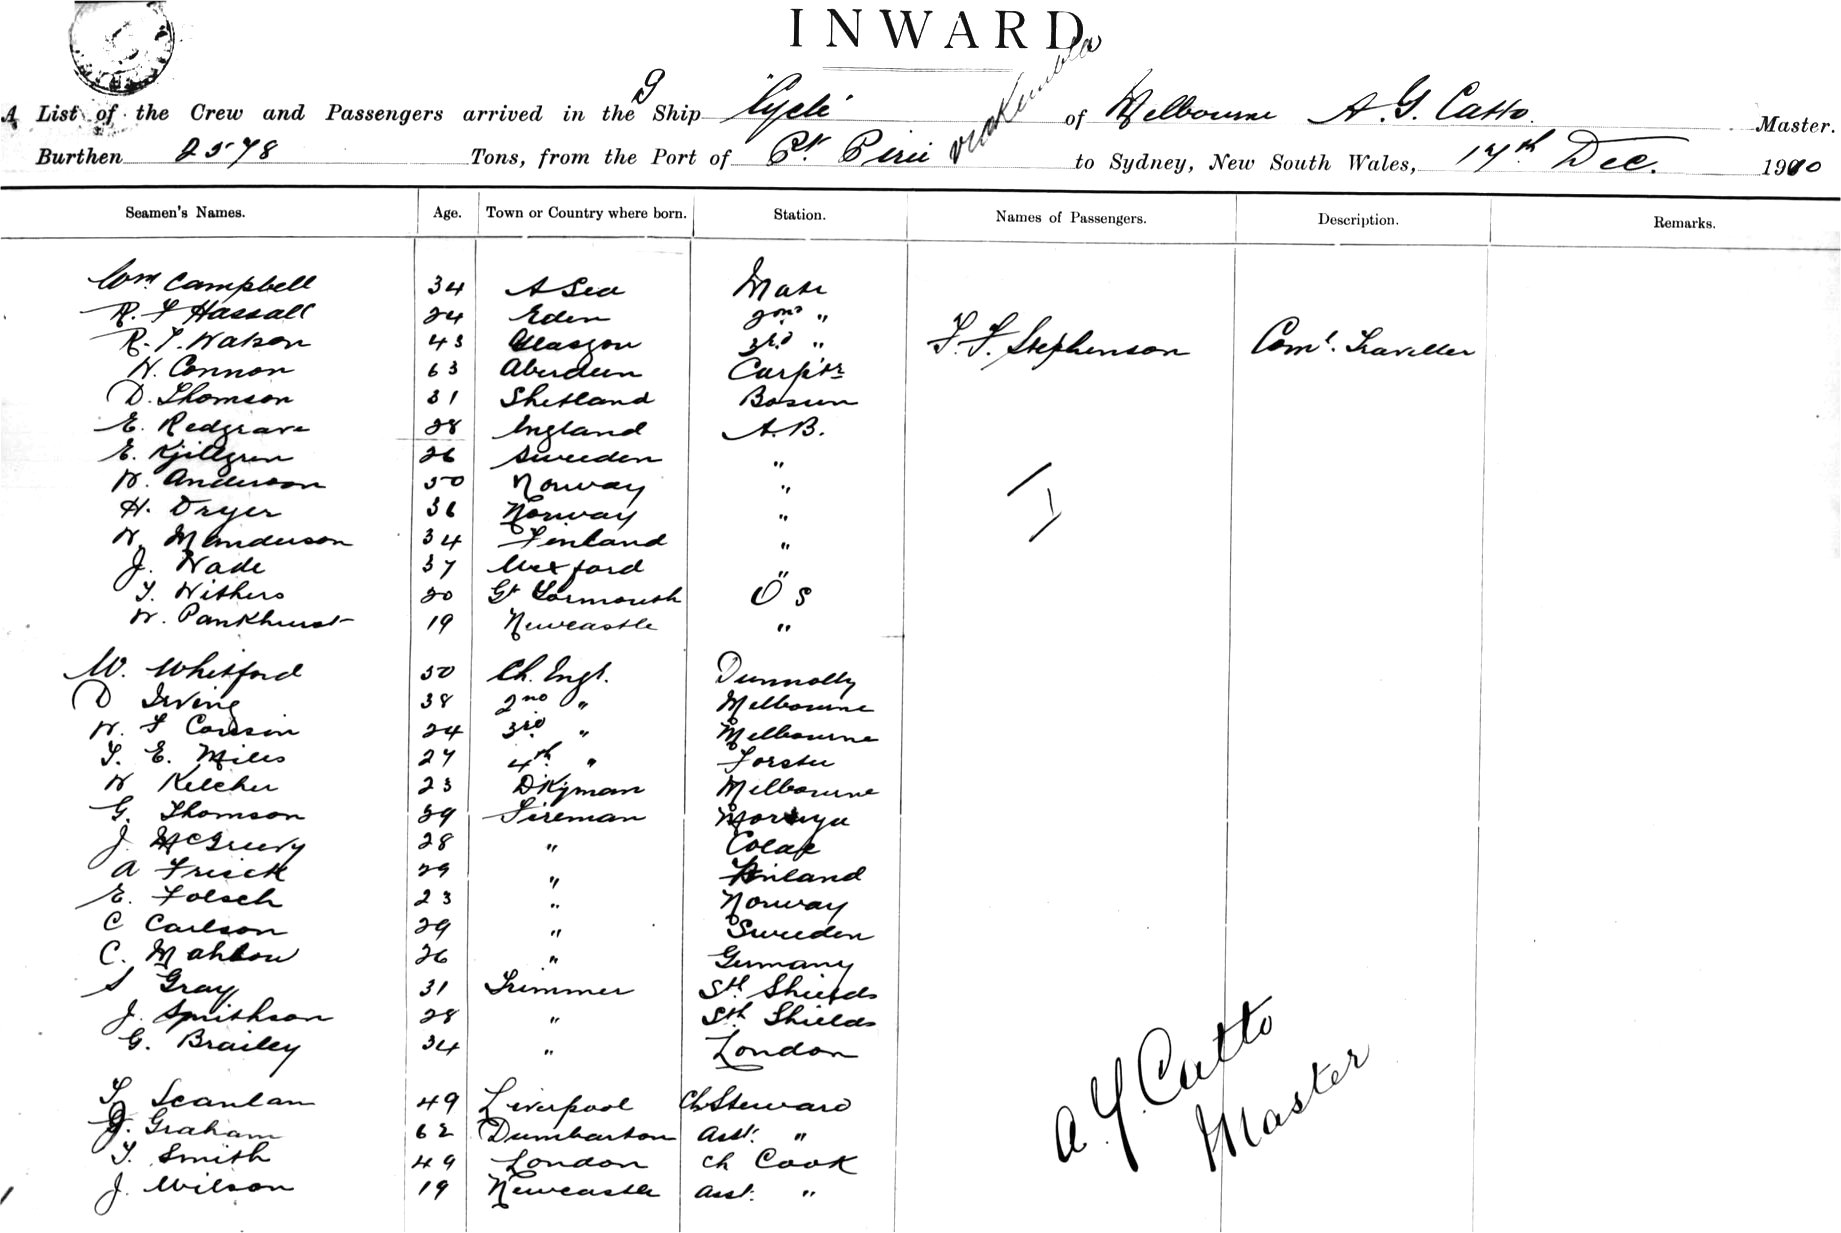 INWARD
A List of the Crew and Passengers arrived in the S Ship Cycle of Melbourne A. G. Catto. Master.
Burthen 2578 Tons, from the Port of Pt. Pirie via Kembla to Sydney, New South Wales, 17th Dec. 1900
Seamen's Names. Age. Town or Country where born. Station. Names of Passengers. Description. Remarks.
Wm Campbell 34 At Sea Mate
R. F Hassall 24 Eden 2nd "
R. T. Watson 43 Glasgow 3rd " F. F. Stephenson Coml. Traveller
W. Connon 63 Aberdeen Carp'tr
D. Thomson 31 Shetland Bosun
E. Redgrave 28 England A. B.
E. Kjillgren 26 Sweeden "
W. Anderson 50 Norway "
H. Dryer 36 Norway "
W. Manderson 34 Finland "
J. Wade 37 Wexford "
T. Withers 20 Gt Yarmouth O S
W. Pankhurst 19 Newcastle "
W. Whitford 50 Ch. Engr. Dunnolly
D Irving 38 2nd " Melbourne
W. F 24 3rd " Melbourne
T. E. Miles 27 4th " Forster
W Kelcher 23 DKyman Melbourne
G. Thomson 29 Fireman Moruya
J. McGreevy 28 " Colac
A Frisck 29 " Finland
E. Folsch 23 " Norway
C Carlson 29 " Sweeden
C. Mahlow 26 " Germany
S Gray 31 Trimmer Sth. Shields
J. Smithson 28 " Sth Shields
G. Brailey 34 " London
T. Scanlan 49 Liverpool Ch Steward
J. Graham 62 Dumbarton Asst. "
T. Smith 49 London Ch Cook
J. Wilson 19 Newcastle Asst. "
A. G. Catto
Master